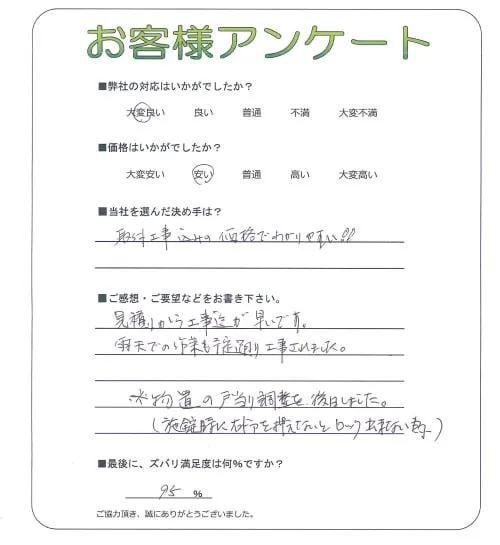 お客様アンケート
■弊社の対応はいかがでしたか？
大変良い 良い 普通 不満 大変不満
■価格はいかがでしたか？
大変安い 安い 普通 高い 大変高い
■当社を選んだ決め手は？
取付工事込みの価格でわかりやすい!!
■ご感想・ご要望などをお書き下さい。
見積りから工事迄が早いです。
雨天での作業も予定通り工事されました。
※物置の戸当り調整を後日しました。
(施錠時に右ドアを押えないとロック出来ない為。)
■最後に、ズバリ満足度は何%ですか？
95 %
ご協力頂き、誠にありがとうございました。